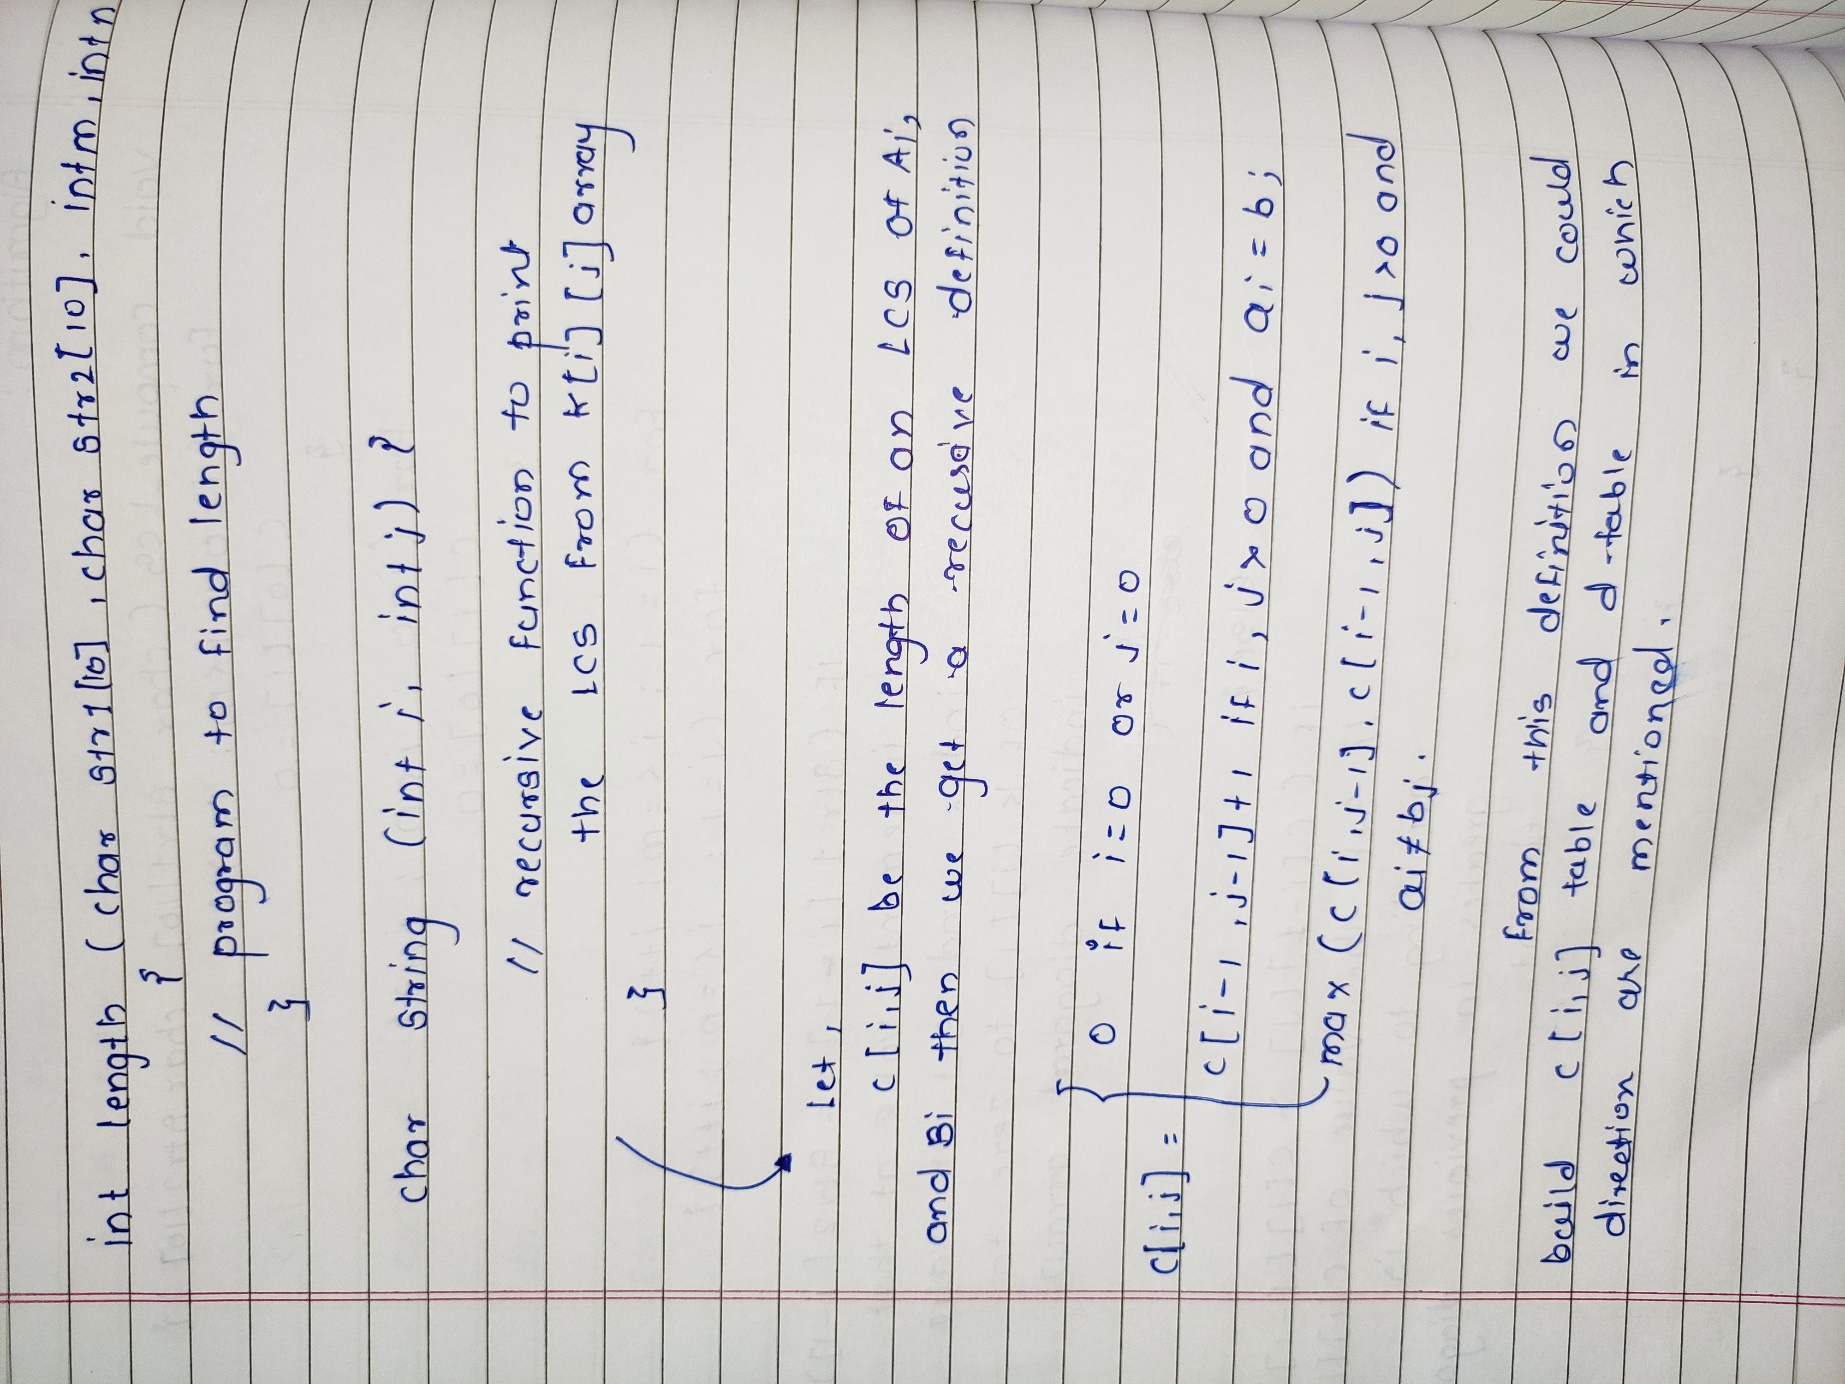 int length (char str1[10], char str2[10], int m, int n
{
// program to find length
}
char string (int i, int j) {
// recursive function to print
the LCS from K[i][j] array
}
Let,
c[i,j] be the length of an LCS of Ai,
and Bi then we get a reccusive definition
0 if i=0 or j=0
c[i,j] =
c[i-1,j-1]+1 if i,j>0 and ai=bj
max(c[i,j-1].c[i-1,j]) if i,j>0 and
ai≠bj.
from this definition we could
build c[i,j] table and d-table in which
direction are mentioned.